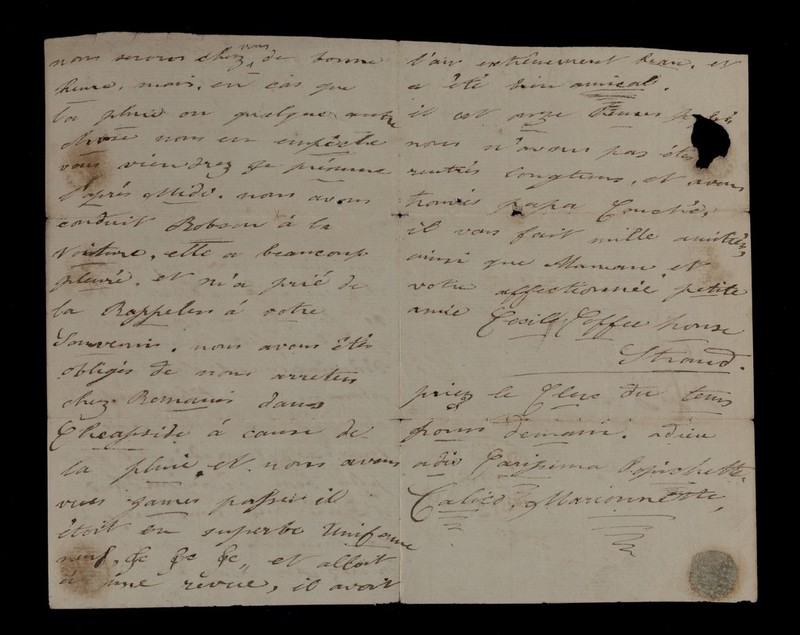 nous serons chez vous de bonne
heure, mais, en cas que
la pluie ou quelque autre
chose nous en empêche
vous viendrez je présume
l'après Midi. nous avons
conduit Robson à la
Voiture, elle a beaucoup
pleuré, et m'a prié de
la Rappeler à votre
Souvenir. nous avons étés
obligés de nous arreter
chez Romanis dans
Cheapside à cause de
la pluie, et nous avons
vues James passer il
étoit en superbe Uniforme
neuf, &c &c &c, et alloit
à une révue, il avoit
l'air extrêmement beau, et
a été bien amical.
il est onze heures
nous n'avons pas étés
rentrés longtems, et avons
trouvés papa Couché,
il vous fait mille amitiés,
ainsi que Maman, et
votre affectionnée petite
amie Coffee house
Strand.
priez le Clerc du tems
pour demain. adieu
Carissima
Marionnette,